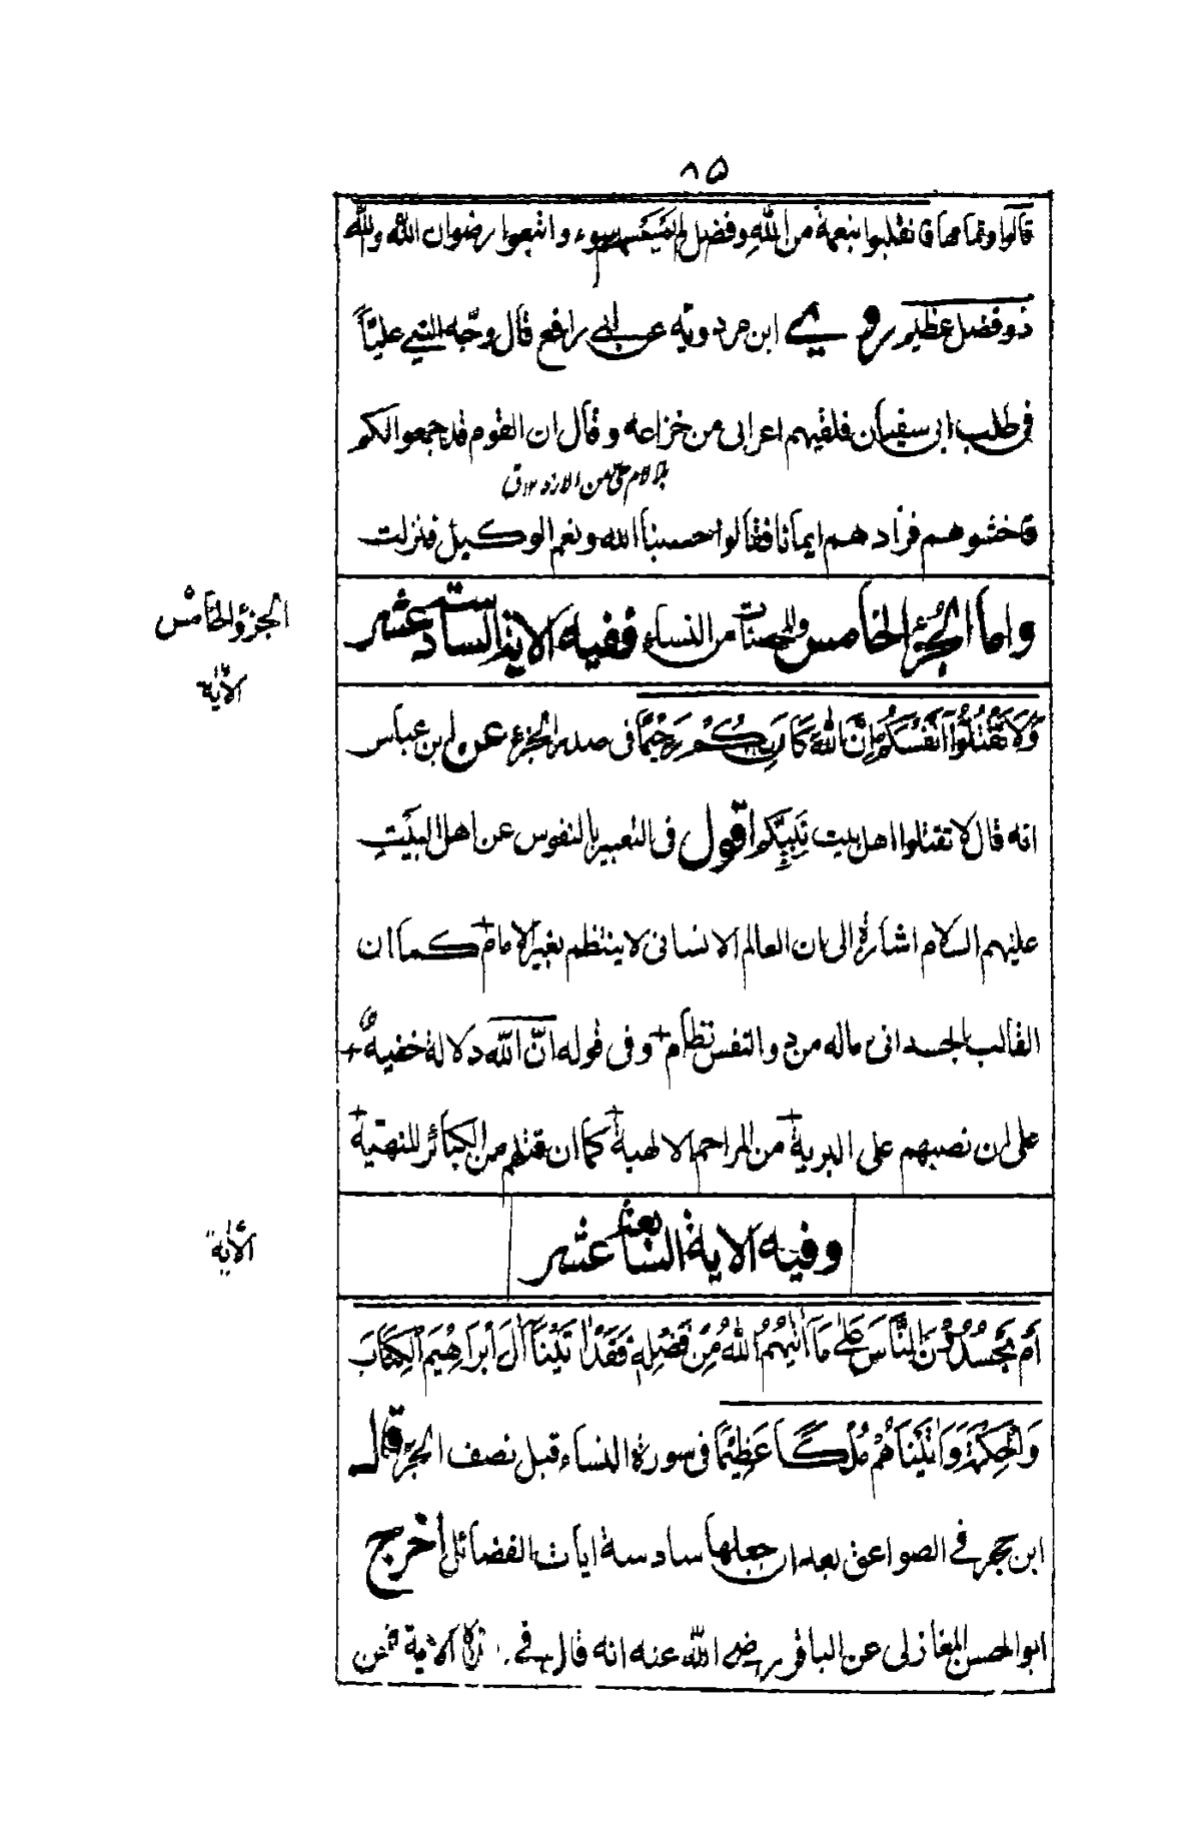 ٨٥
قالوا وتمامها فانقلبوا بنعمة من الله وفضل لم يمسسهم سوء واتبعوا رضوان الله والله
ذو فضل عظيم روى ابن مردويه عن ابى رافع قال وجّه النبى عليّاً
فى طلب ابى سفيان فلقيهم اعرابى من خزاعه وقال ان القوم قد جمعوا لكم
حى من الازد
فاخشوهم فزادهم ايمانا فقالوا حسبنا الله ونعم الوكيل فنزلت
الجزؤ الخامس
واما الجزء الخامس والمحصنات من النساء ففيه الاية السادسة عشر
الأية
وَلَا تَقْتُلُوٓا أَنْفُسَكُمْ إِنَّ اللهَ كَانَ بِكُمْ رَحِيْمًا فى صدر الجزء عن ابن عباس
انه قال لا تقتلوا اهل بيت نَبِيِّكم اقول فى التعبير بالنفوس عن اهل البَيْتِ
عليهم السلام اشارة الى ان العالم الانسانى لا ينتظم بغير الامام كما ان
القالب الجسدانى ماله من دون النفس نظام وفى قوله انّ الله دلالة خفية
على ان نصبهم على البرية من المراحم الالهية كما ان قتلهم من الكبائر
الأية
وفيه الاية السابعة عشر
أَمْ يَحْسُدُوْنَ النَّاسَ عَلٰى مَا اٰتٰىهُمُ اللهُ مِنْ فَضْلِهٖ فَقَدْ اٰتَيْنَا اٰلَ اِبْرَاهِيْمَ الْكِتَابَ
وَالْحِكْمَةَ وَاٰتَيْنَاهُمْ مُلْكًا عَظِيْمًا فى سورة النساء قبل نصف الجزء قال
ابن حجر فى الصواعق بعد ان جعلها سادسة ايات الفضائل اخرج
ابو الحسن المغازلى عن الباقر رضى الله عنه انه قال فى هذه الاية نحن